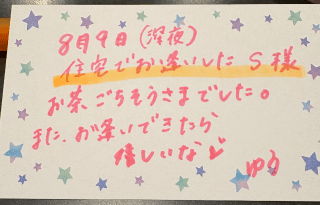 8月9日(深夜)
住宅でお逢いした S様
お茶ごちそうさまでした。
また、お逢いできたら
嬉しいな♡
ゆう